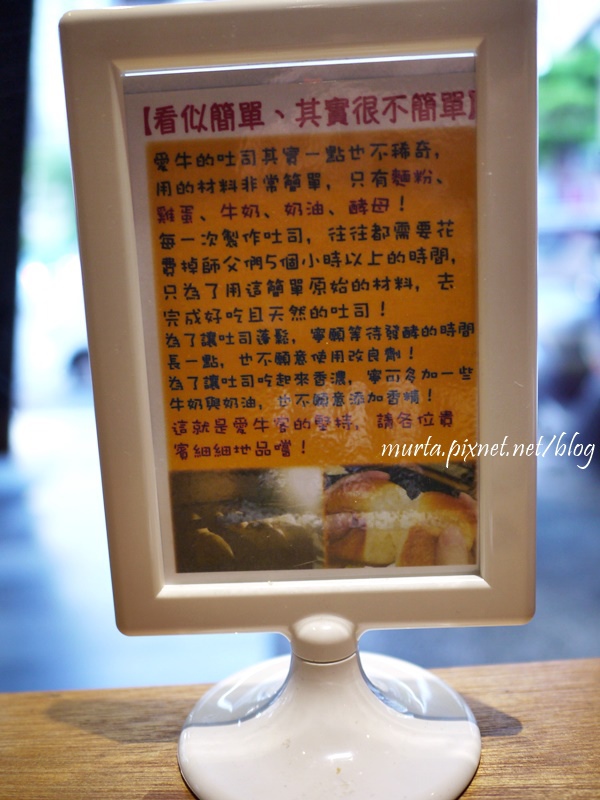 【看似簡單、其實很不簡單】
愛牛的吐司其實一點也不稀奇，
用的材料非常簡單，只有麵粉、
雞蛋、牛奶、奶油、酵母！
每一次製作吐司，往往都需要花
費掉師父們5個小時以上的時間，
只為了用這簡單原始的材料，去
完成好吃且天然的吐司！
為了讓吐司蓬鬆，寧願等待發酵的時間
長一點，也不願意使用改良劑！
為了讓吐司吃起來香濃，寧可多加一些
牛奶與奶油，也不願意添加香精！
這就是愛牛客的堅持，請各位貴
賓細細地品嚐！
murta.pixnet.net/blog